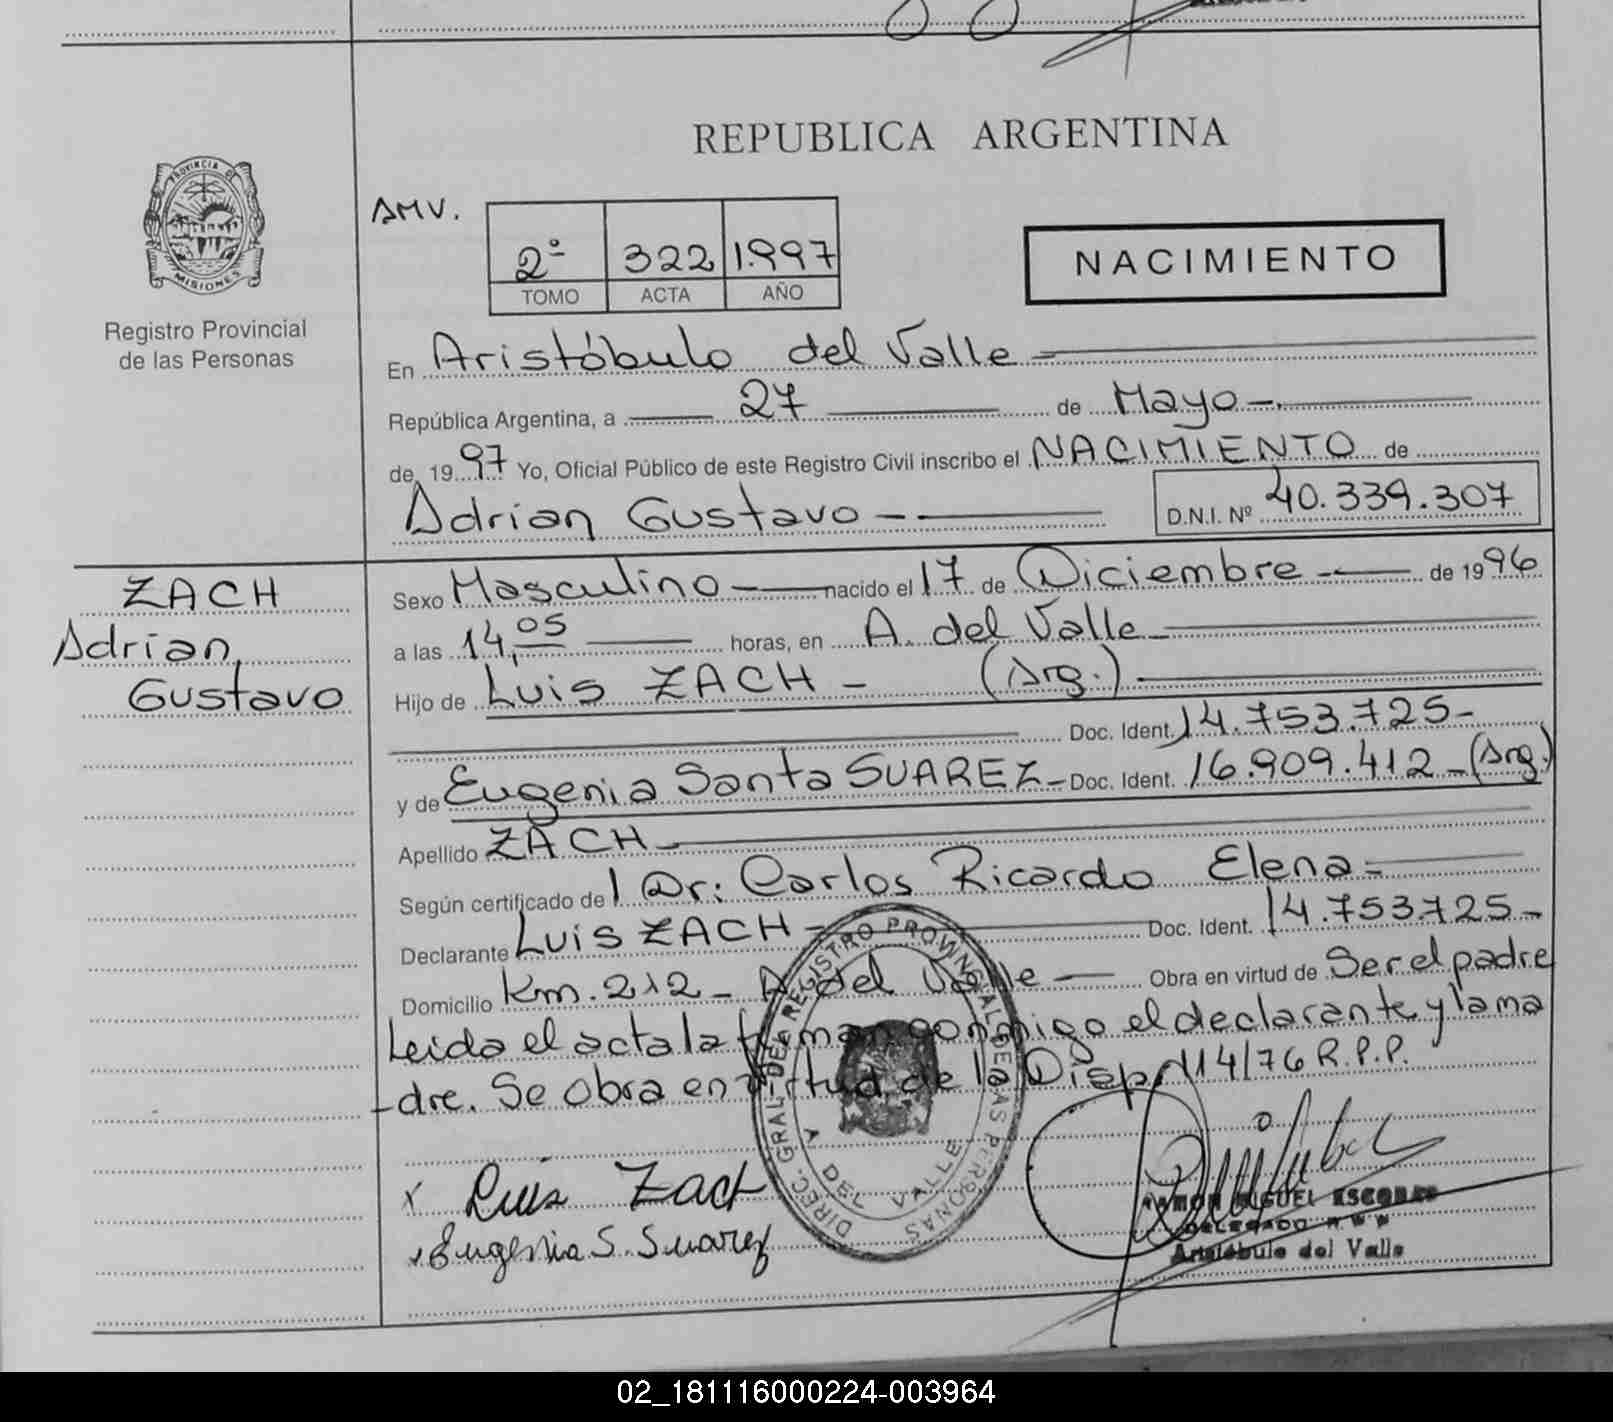 REPUBLICA ARGENTINA
PROVINCIA DE
MISIONES
Registro Provincial
de las Personas
AMV.
2º 322 1.997
TOMO ACTA AÑO
NACIMIENTO
En Aristóbulo del Valle
República Argentina, a 27 de Mayo
de 1997 Yo, Oficial Público de este Registro Civil inscribo el NACIMIENTO de
Adrian Gustavo D.N.I. Nº 40.339.307
ZACH
Adrian
Gustavo
Sexo Masculino nacido el 17 de Diciembre de 1996
a las 14,05 horas, en A. del Valle
Hijo de Luis ZACH - (Arg.)
Doc. Ident. 14.753.725-
y de Eugenia Santa SUAREZ- Doc. Ident. 16.909.412-(Arg.)
Apellido ZACH
Según certificado del Dr: Carlos Ricardo Elena
Declarante Luis ZACH Doc. Ident. 14.753.725-
Domicilio Km. 212 - A del Valle Obra en virtud de Ser el padre
Leida el acta la firman conmigo el declarante y la ma
-dre. Se obra en virtud de la Disp. 114/76 R.P.P.
DIREC. GRAL DEL REGISTRO PROVINCIAL DE LAS PERSONAS
A DEL VALLE
x Luis Zach
x Eugenia S. Suarez
RAMON MIGUEL ESCOBAR
DELEGADO
Aristóbulo del Valle
02_181116000224-003964